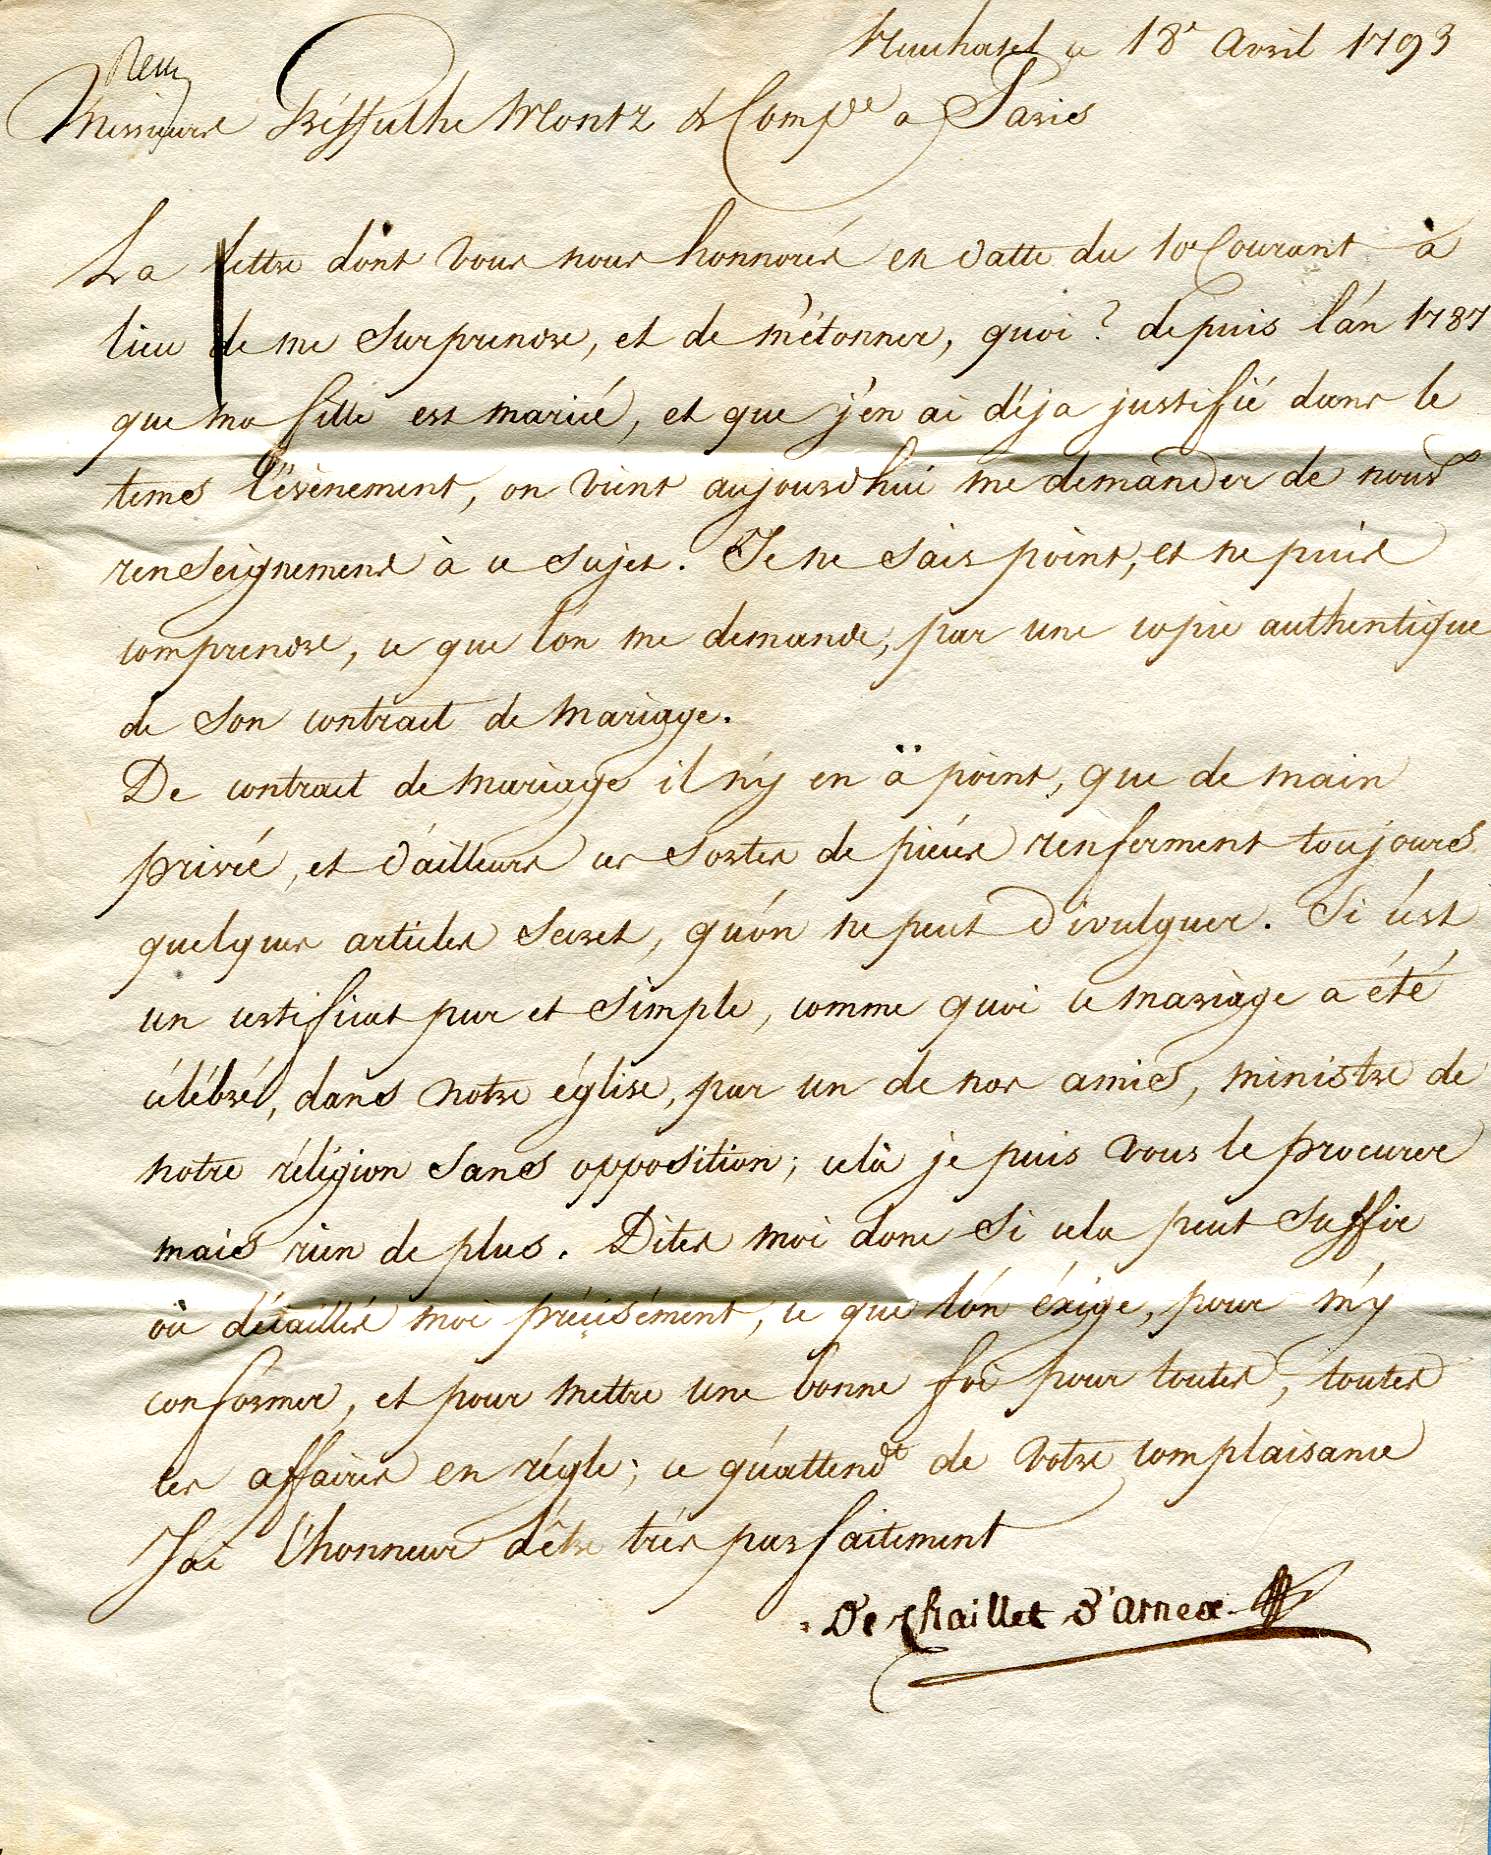 Neuchatel ce 18e Avril 1793
Messieurs Montz & Compie a Paris
La lettre dont vous nous honnorés en datte du 10 Courant à
lieu de me Surprendre, et de m'étonner, quoi? depuis l'an 1787
que ma fille est marié, et que j'en ai déja justifié dans le
tems l'évènement, on vient aujourdhui me demander de nouvx
renseignemens à ce Sujet. Je ne Sais point, et ne puis
comprendre, ce que l'on me demande, par une copie authentique
de Son contract de mariage.
De contract de mariage il n'y en ä point, que de main
privée, et d'ailleurs ces Sortes de pièces renferment toujours
quelques articles Secret, qu'on ne peut divulguer. Si c'est
un certificat pur et Simple, comme quoi ce mariage a été
célébré, dans notre église, par un de nos amies, ministre de
notre réligion Sans opposition; celà je puis vous le procurer
mais rien de plus. Dites moi donc Si cela peut Suffir
ou détaillés moi précisément, ce que l'on éxige, pour m'y
conformer, et pour mettre une bonne foi pour toutes, toutes
les affaires en régle; ce qu'attendt de votre complaisance
Jai l'honneur d'être très parfaitement
De Chaillet d'Arnex